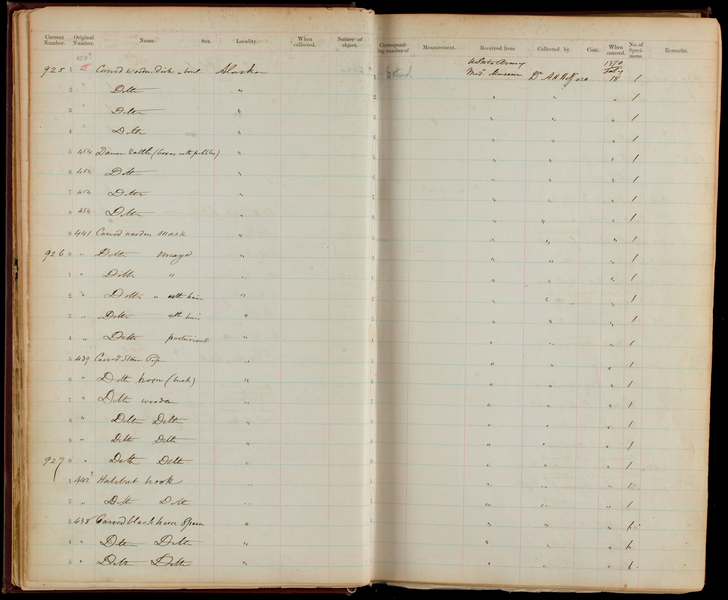 Current Number. Original Number. Name. Sex. Locality. When collected. Nature of object. Corresponding number of Measurement. Received from Collected by Cost. When entered. No. of Specimens Remarks.
450
U States Army 1870
9251 Carved wooden dish boat Alaska Med. Museum Dr A H Hoff USA 18 1
2 Ditto " " " " 1
3 Ditto " " " " 1
4 Ditto " " " " 1
5 454 Dance Rattle ( with pebbles) " " " " 1
6 454 Ditto " " " " 1
7 454 Ditto " " " " 1
8 454 Ditto " " " " 1
9 441 Carved wooden Mask " " " " 1
926 0 " Ditto Image " " " " 1
1 " Ditto " " " " " 1
2 " Ditto " with hair " " " " 1
3 " Ditto with hair " " " " 1
4 " Ditto " " " " 1
5 439 Carved Stone Pipe " " " " 1
6 " Ditto horn " " " " 1
7 " Ditto wooden " " " " 1
8 " Ditto Ditto " " " " 1
9 " Ditto Ditto " " " " 1
927 0 " Ditto Ditto " " " " 1
1 442 Halibut hook " " " " 1
2 " Ditto Ditto " " " " 1
3 438 Carved black horn Spoon " " " " 1
4 " Ditto Ditto " " " " 1
5 " Ditto Ditto " " " " 1